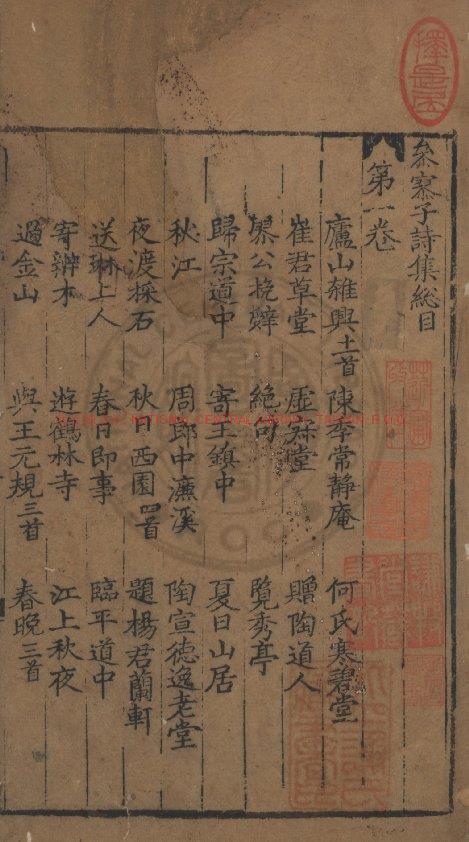 參寥子詩集總目
第一卷
廬山雜興十一首 陳季常靜庵 何氏寒碧堂
崔君草堂 虛 堂 贈陶道人
 公挽辭 絶句 覽秀亭
歸宗道中 寄王鎮中 夏日山居
秋江 周郎中濂溪 陶宣德逸老堂
夜渡採石 秋日西園四首 題楊君蘭軒
送琳上人 春日即事 臨平道中
寄辨才 遊鶴林寺 江上秋夜
過金山 與王元規三首 春晚三首